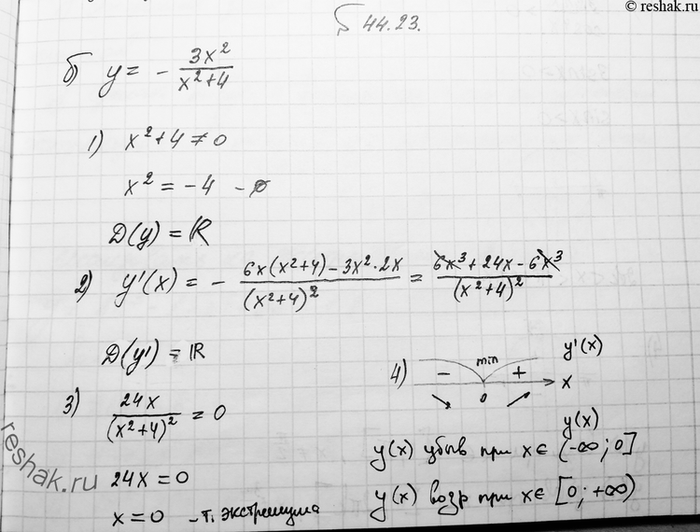 © reshak.ru
§ 44.23.
б) y = - 3x²/(x²+4)
1) x²+4 ≠ 0
x² = -4 - ∅
D(y) = R
2) y'(x) = - (6x(x²+4) - 3x²·2x)/(x²+4)² = (6x³ + 24x - 6x³)/(x²+4)²
D(y') = R
3) 24x/(x²+4)² = 0
24x = 0
x = 0 - т. экстремума
4) - min + y'(x)
0 x
y(x)
y(x) убыв при x ∈ (-∞; 0]
y(x) возр при x ∈ [0; +∞)
reshak.ru